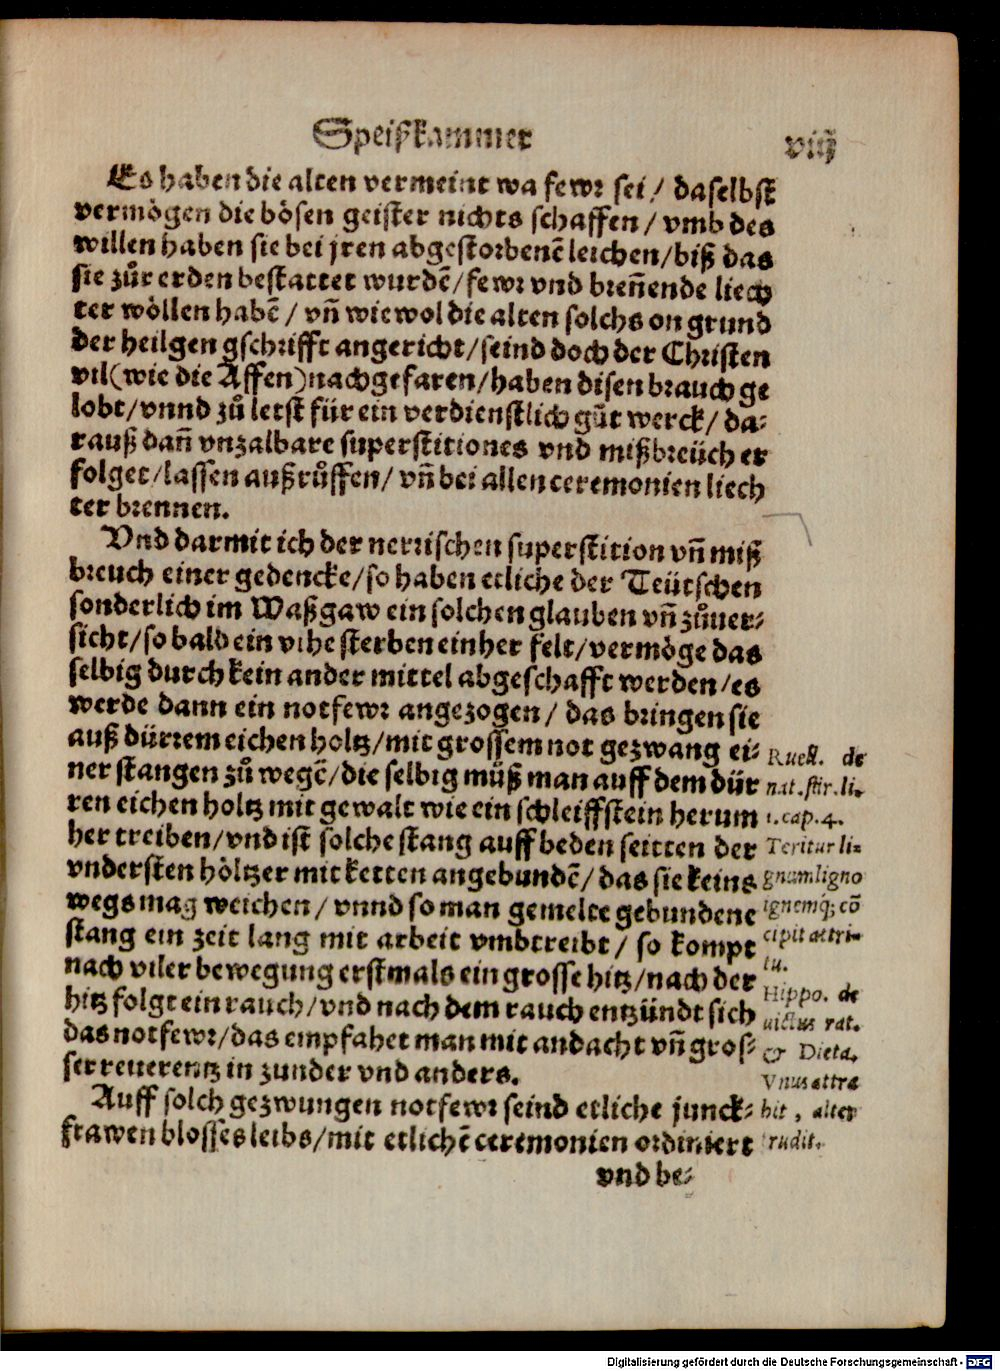 Speißkammer viij
Es haben die alten vermeint wa fewr sei / daselbst
vermögen die bösen geister nichts schaffen / vmb des
willen haben sie bei jren abgestorbenẽ leichen / biß das
sie zůr erden bestattet wurdẽ / fewr vnd breñende liech
ter wöllen habẽ / vñ wiewol die alten solchs on grund
der heilgen gschrifft angericht / seind doch der Christen
vil (wie die Affen) nachgefaren / haben disen brauch ge
lobt / vnnd zů letst für ein verdienstlich gůt werck / da⸗
rauß dañ vnzalbare superstitiones vnd mißbreüch er
folget / lassen außrůffen / vñ bei allen ceremonien liech
ter brennen.
Vnd darmit ich der nerrischen superstition vñ miß
breuch einer gedencke / so haben etliche der Teütschen
sonderlich im Waßgaw ein solchen glauben vñ zůuer⸗
sicht / so bald ein vihe sterben einher felt / vermöge das
selbig durch kein ander mittel abgeschafft werden / es
werde dann ein notfewr angezogen / das bringen sie
auß dürrem eichen holtz / mit grossem not gezwang ei⸗
ner stangen zů wegẽ / die selbig můß man auff dem dür
ren eichen holtz mit gewalt wie ein schleiffstein herum
her treiben / vnd ist solche stang auff beden seitten der
vndersten höltzer mit ketten angebundẽ / das sie keins
wegs mag weichen / vnnd so man gemelte gebundene
stang ein zeit lang mit arbeit vmbtreibt / so kompt
nach viler bewegung erstmals ein grosse hitz / nach der
hitz folgt ein rauch / vnd nach dem rauch entzündt sich
das notfewr / das empfahet man mit andacht vñ gros⸗
ser reuerentz in zunder vnd anders.
Auff solch gezwungen notfewr seind etliche junck⸗
frawen blosses leibs / mit etlichẽ ceremonien ordiniert
vnd be⸗
Ruell. de
nat. stir. li-
1. cap. 4.
Teritur li-
gnum ligno
ignemq; cō
cipit attri-
tu.
Hippo. de
uictus rat.
& Dieta.
Vnus attra
hit, alter
trudit.
Digitalisierung gefördert durch die Deutsche Forschungsgemeinschaft - DFG